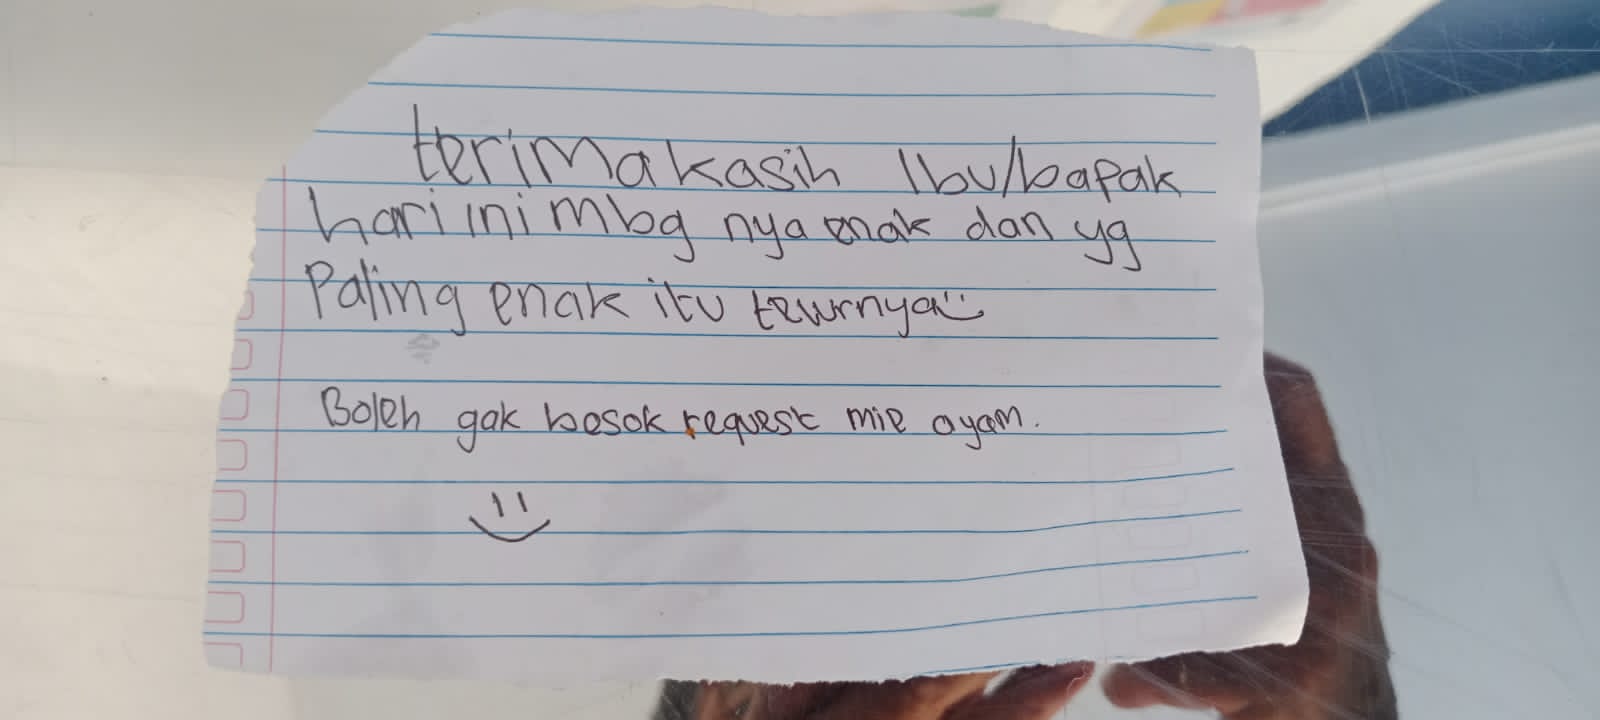 terimakasih Ibu/bapak
hari ini mbg nya enak dan yg
Paling enak itu telurnya
Boleh gak besok request mie ayam.